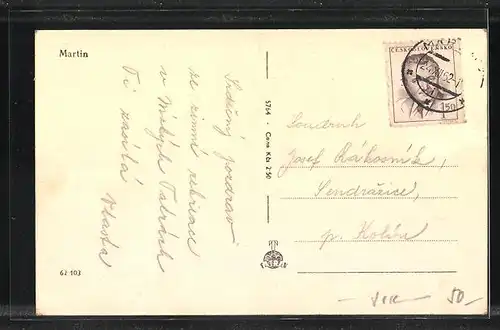 Martin
Srdečný pozdrav
ze zimní rekreace
v Malých Tatrách
Ti zasílá Vlasta
62 103
5764 - Cena Kčs 2·50
ČESKOSLOVENSKO
150
Soudruh
Josef Rákosník,
Sendražice,
p. Kolín
50.-